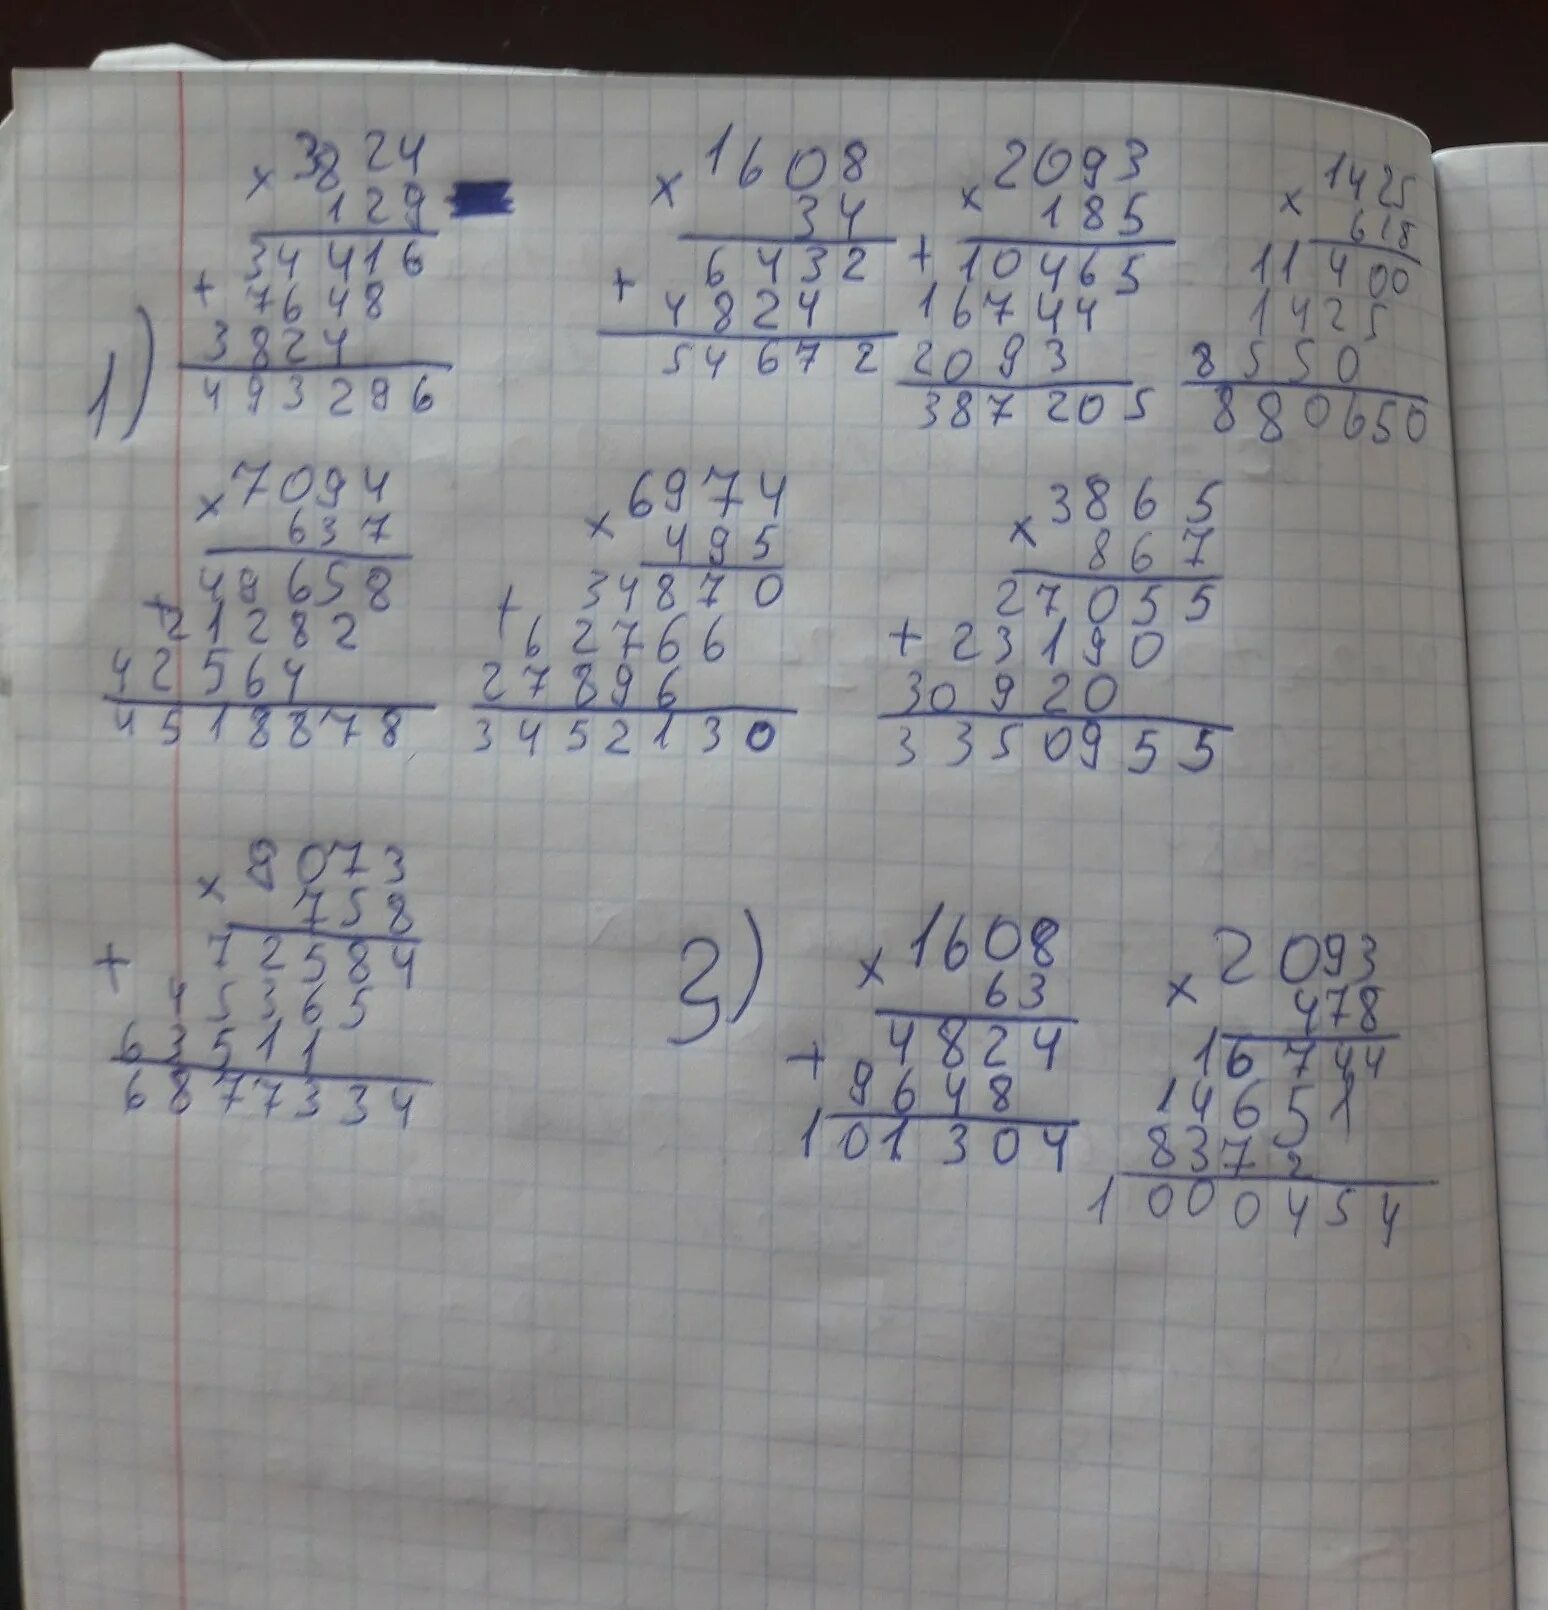 1)
× 3824
129
34416
+ 7648
3824
493296
× 1608
34
6432
+ 4824
54672
× 2093
185
+ 10465
16744
2093
387205
× 1425
618
11400
1425
8550
880650
× 7094
637
49658
+ 21282
42564
4518878
× 6974
495
34870
+ 62766
27896
3452130
× 3865
867
27055
+ 23190
30920
3350955
× 9073
758
+ 72584
45365
63511
6877334
2)
× 1608
63
4824
+ 9648
101304
× 2093
478
16744
14651
8372
1000454